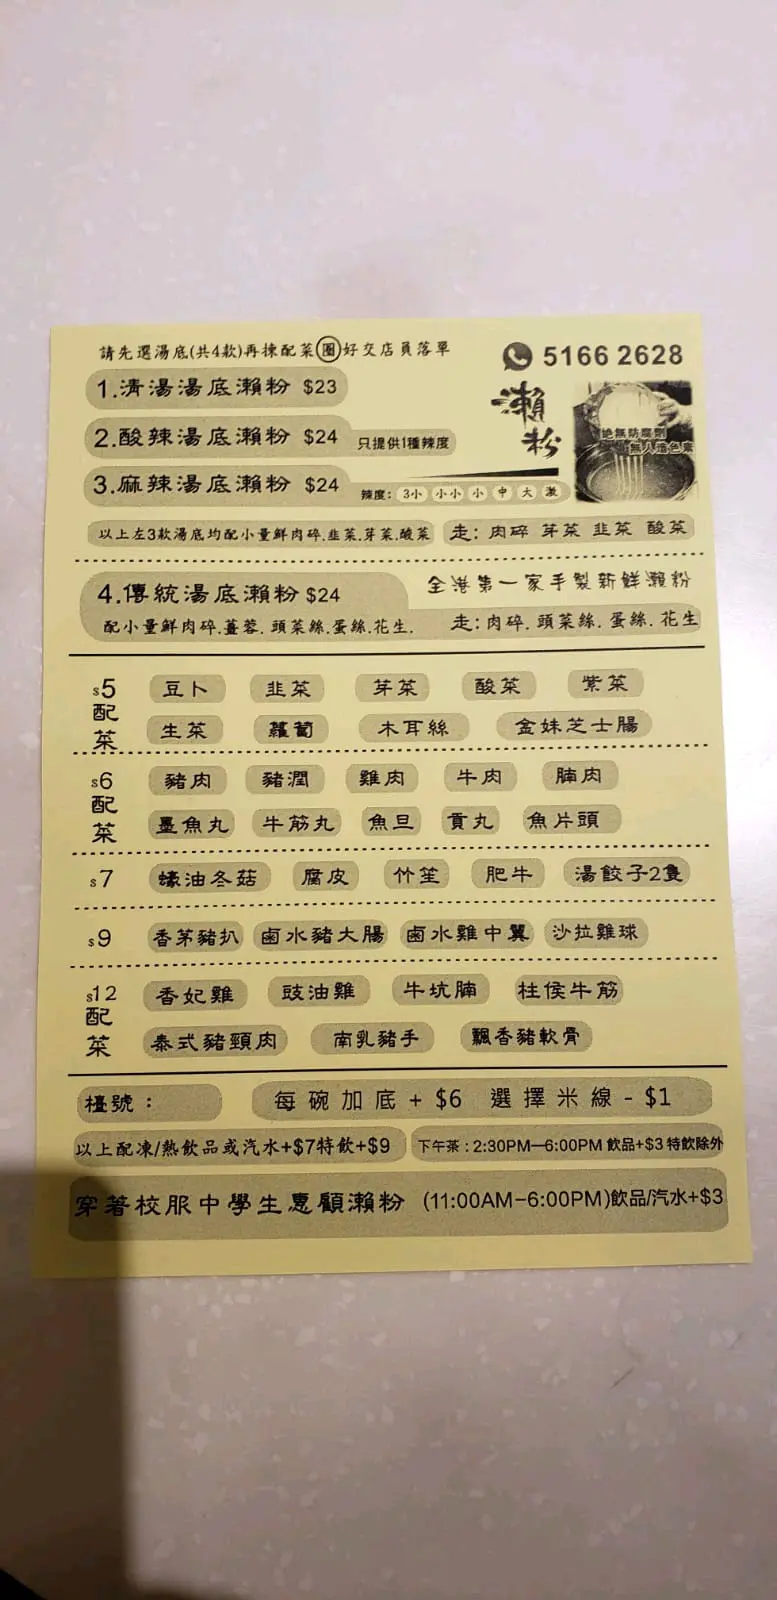 請先選湯底(共4款)再揀配菜圈好交店員落單
5166 2628
1.清湯湯底瀨粉 $23
2.酸辣湯底瀨粉 $24 只提供1種辣度
瀨粉
絕無防腐劑
無人造色素
3.麻辣湯底瀨粉 $24 辣度: 3小 小小 小 中 大 激
以上左3款湯底均配小量鮮肉碎.韭菜.芽菜.酸菜 走: 肉碎 芽菜 韭菜 酸菜
4.傳統湯底瀨粉 $24 全港第一家手製新鮮瀨粉
配小量鮮肉碎.薑蓉. 頭菜絲.蛋絲.花生. 走: 肉碎. 頭菜絲. 蛋絲. 花生
$5配菜 豆卜 韭菜 芽菜 酸菜 紫菜
生菜 蘿蔔 木耳絲 金妹芝士腸
$6配菜 豬肉 豬潤 雞肉 牛肉 腩肉
墨魚丸 牛筋丸 魚旦 貢丸 魚片頭
$7 蠔油冬菇 腐皮 竹笙 肥牛 湯餃子2隻
$9 香茅豬扒 鹵水豬大腸 鹵水雞中翼 沙拉雞球
$12配菜 香妃雞 豉油雞 牛坑腩 柱侯牛筋
泰式豬頸肉 南乳豬手 飄香豬軟骨
檯號： 每碗加底 + $6 選擇米線 - $1
以上配凍/熱飲品或汽水+$7特飲+$9 下午茶 : 2:30PM—6:00PM 飲品+$3 特飲除外
穿著校服中學生惠顧瀨粉 (11:00AM-6:00PM)飲品/汽水+$3